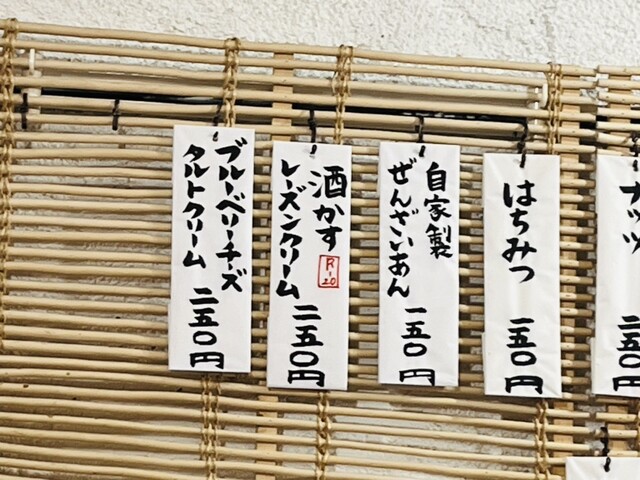 ブルーベリーチーズ
タルトクリーム 二五〇円
酒かす
R-20
レーズンクリーム 二五〇円
自家製
ぜんざいあん 一五〇円
はちみつ 一五〇円
ナッツ 二五〇円